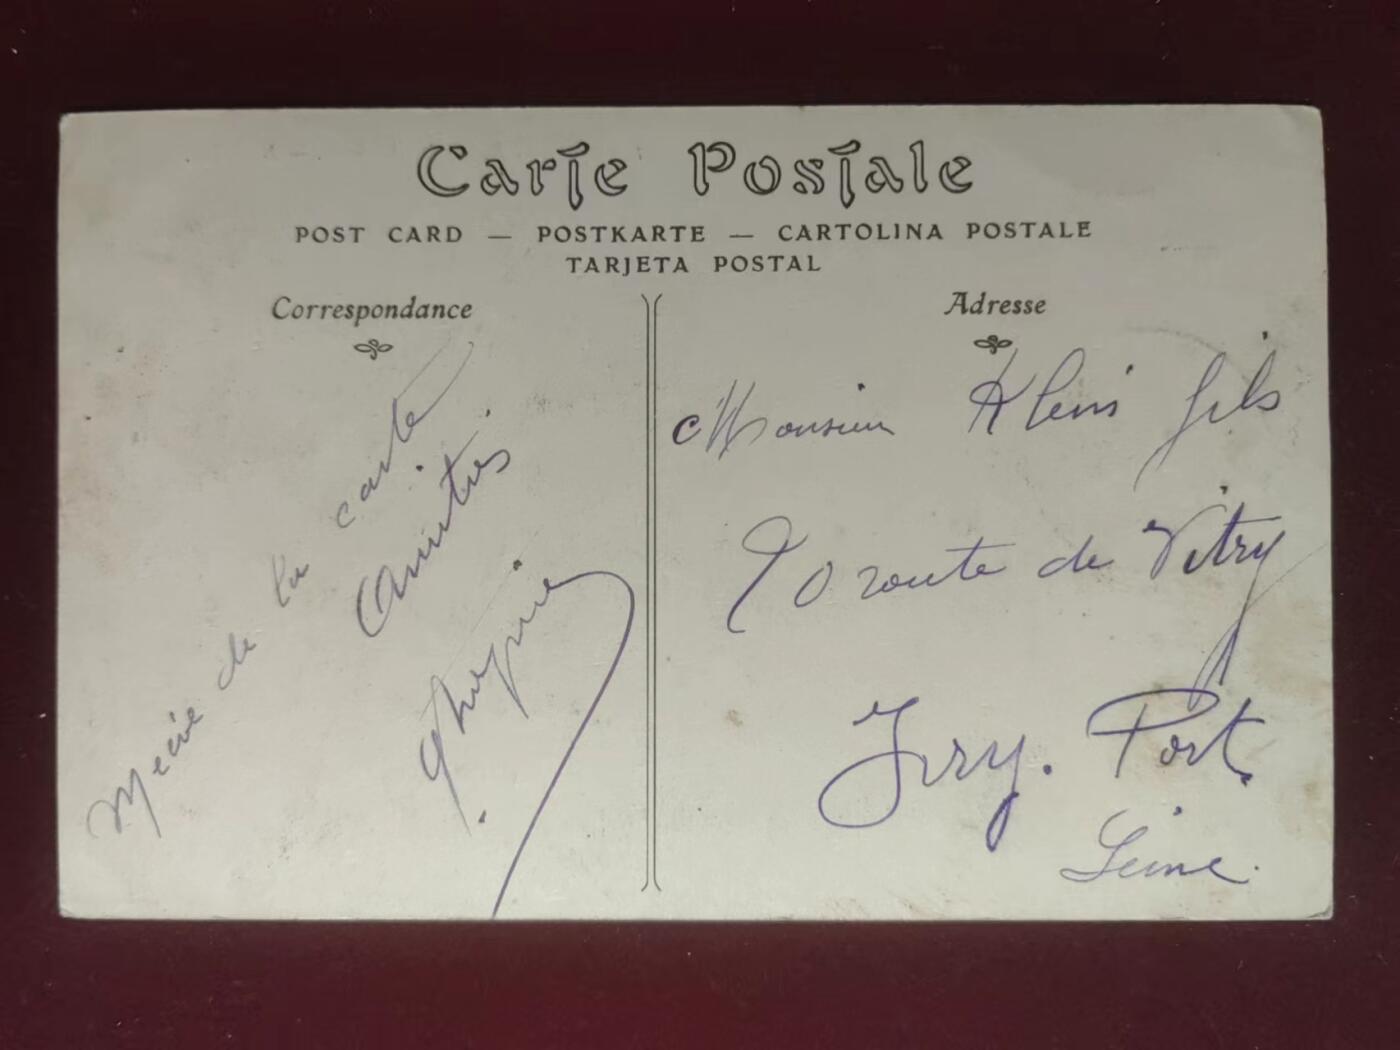 Carte Postale
POST CARD — POSTKARTE — CARTOLINA POSTALE
TARJETA POSTAL
Correspondance
Merci de la carte
Amitiés
Adresse
Monsieur Klein fils
70 route de Vitry
Ivry. Port.
Seine.